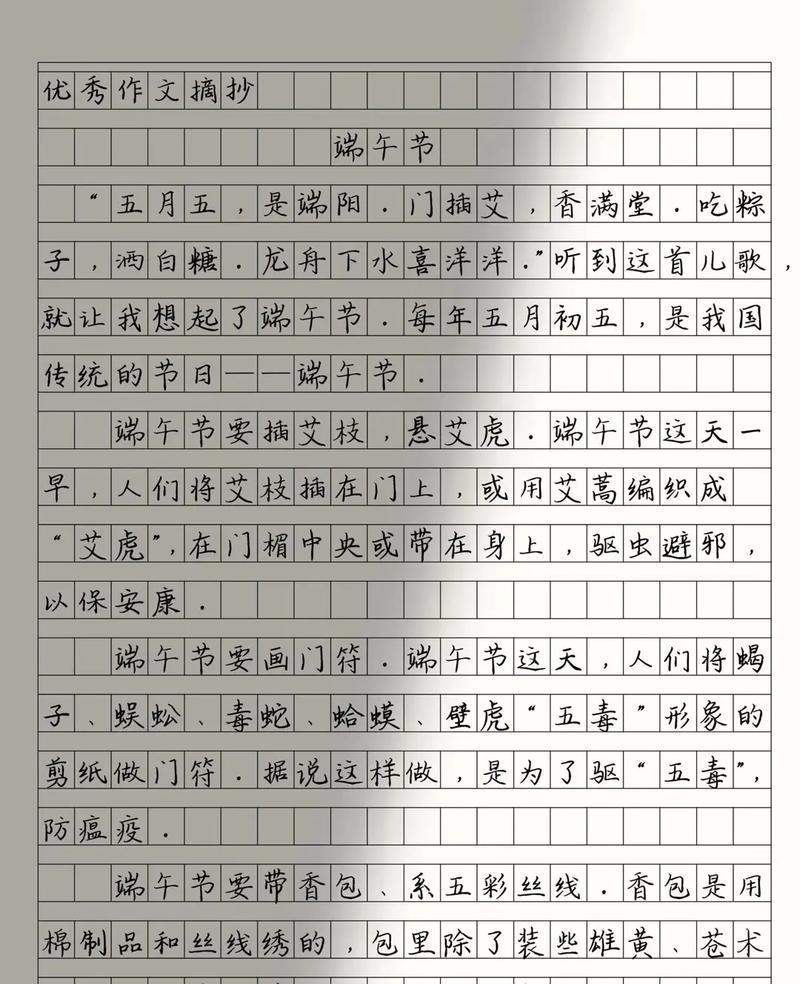 优秀作文摘抄
端午节
“五月五，是端阳．门插艾，香满堂．吃粽
子，洒白糖．龙舟下水喜洋洋．”听到这首儿歌，
就让我想起了端午节．每年五月初五，是我国
传统的节日——端午节．
端午节要插艾枝，悬艾虎．端午节这天一
早，人们将艾枝插在门上，或用艾蒿编织成
“艾虎”，在门楣中央或带在身上，驱虫避邪，
以保安康．
端午节要画门符．端午节这天，人们将蝎
子、蜈蚣、毒蛇、蛤蟆、壁虎“五毒”形象的
剪纸做门符．据说这样做，是为了驱“五毒”，
防瘟疫．
端午节要带香包、系五彩丝线．香包是用
棉制品和丝线绣的，包里除了装些雄黄、苍术